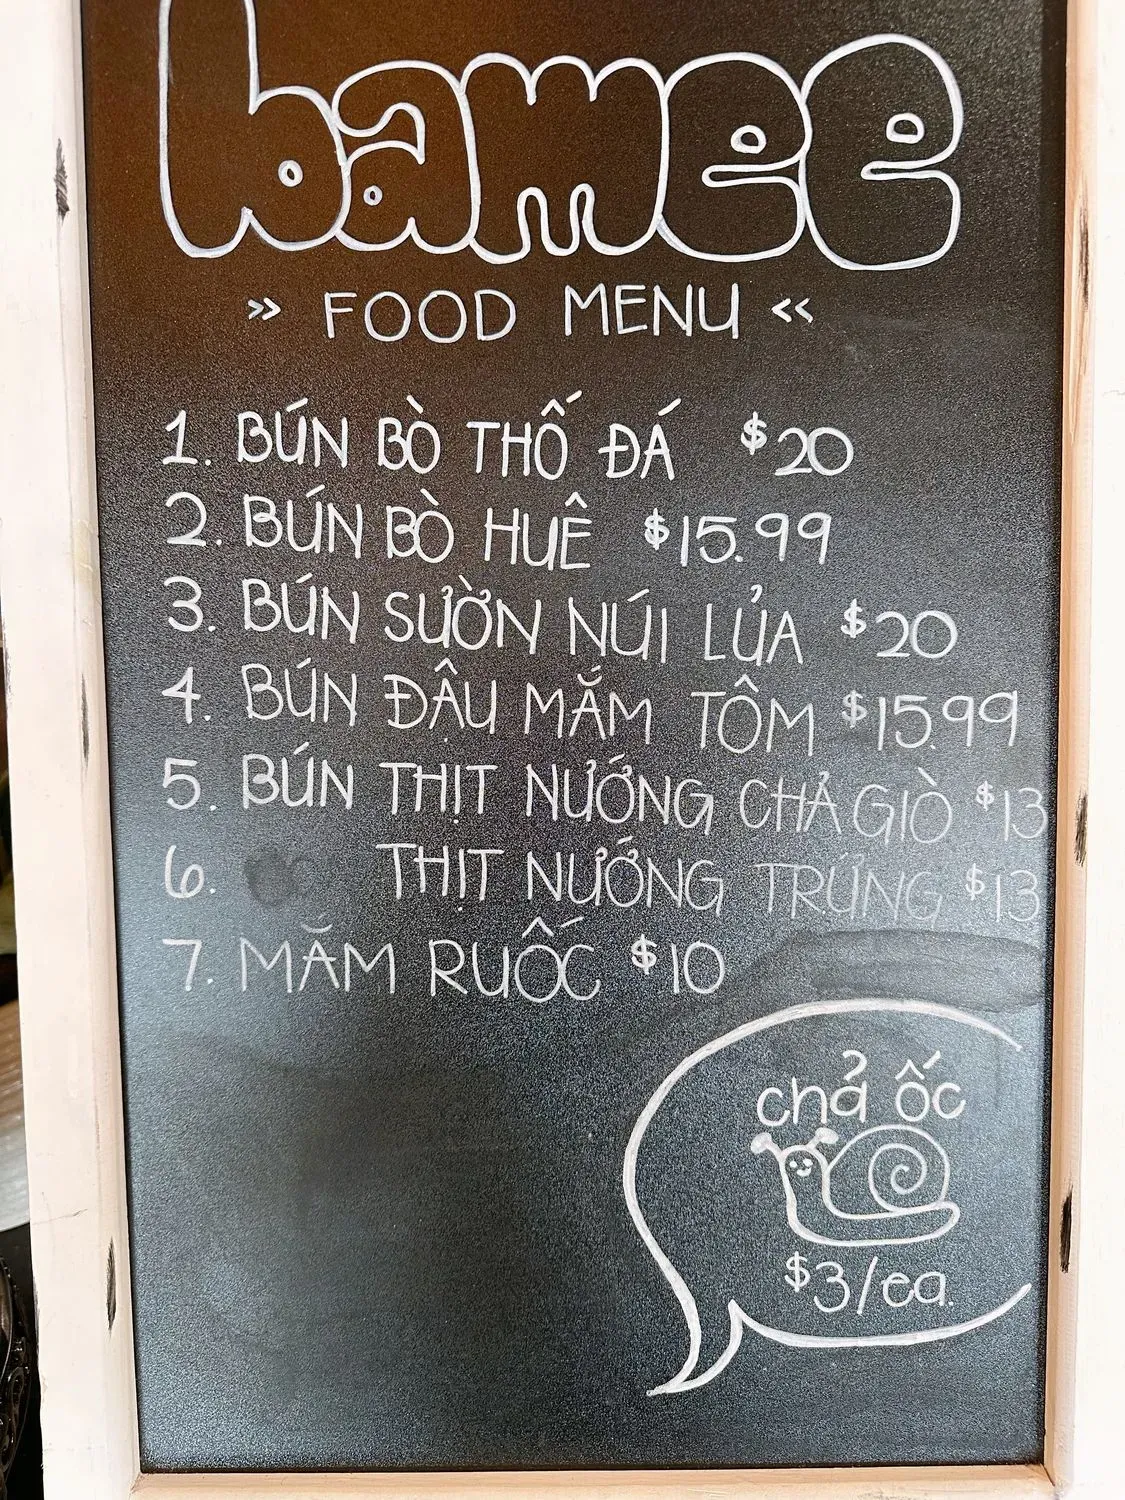 bamee
>> FOOD MENU <<
1. BÚN BÒ THỐ ĐÁ $20
2. BÚN BÒ HUÊ $15.99
3. BÚN SƯỜN NÚI LỦA $20
4. BÚN ĐẬU MẮM TÔM $15.99
5. BÚN THỊT NƯỚNG CHẢ GIÒ $13
6. THỊT NƯỚNG TRỨNG $13
7. MĂM RUỐC $10
chả ốc
$3/ea.